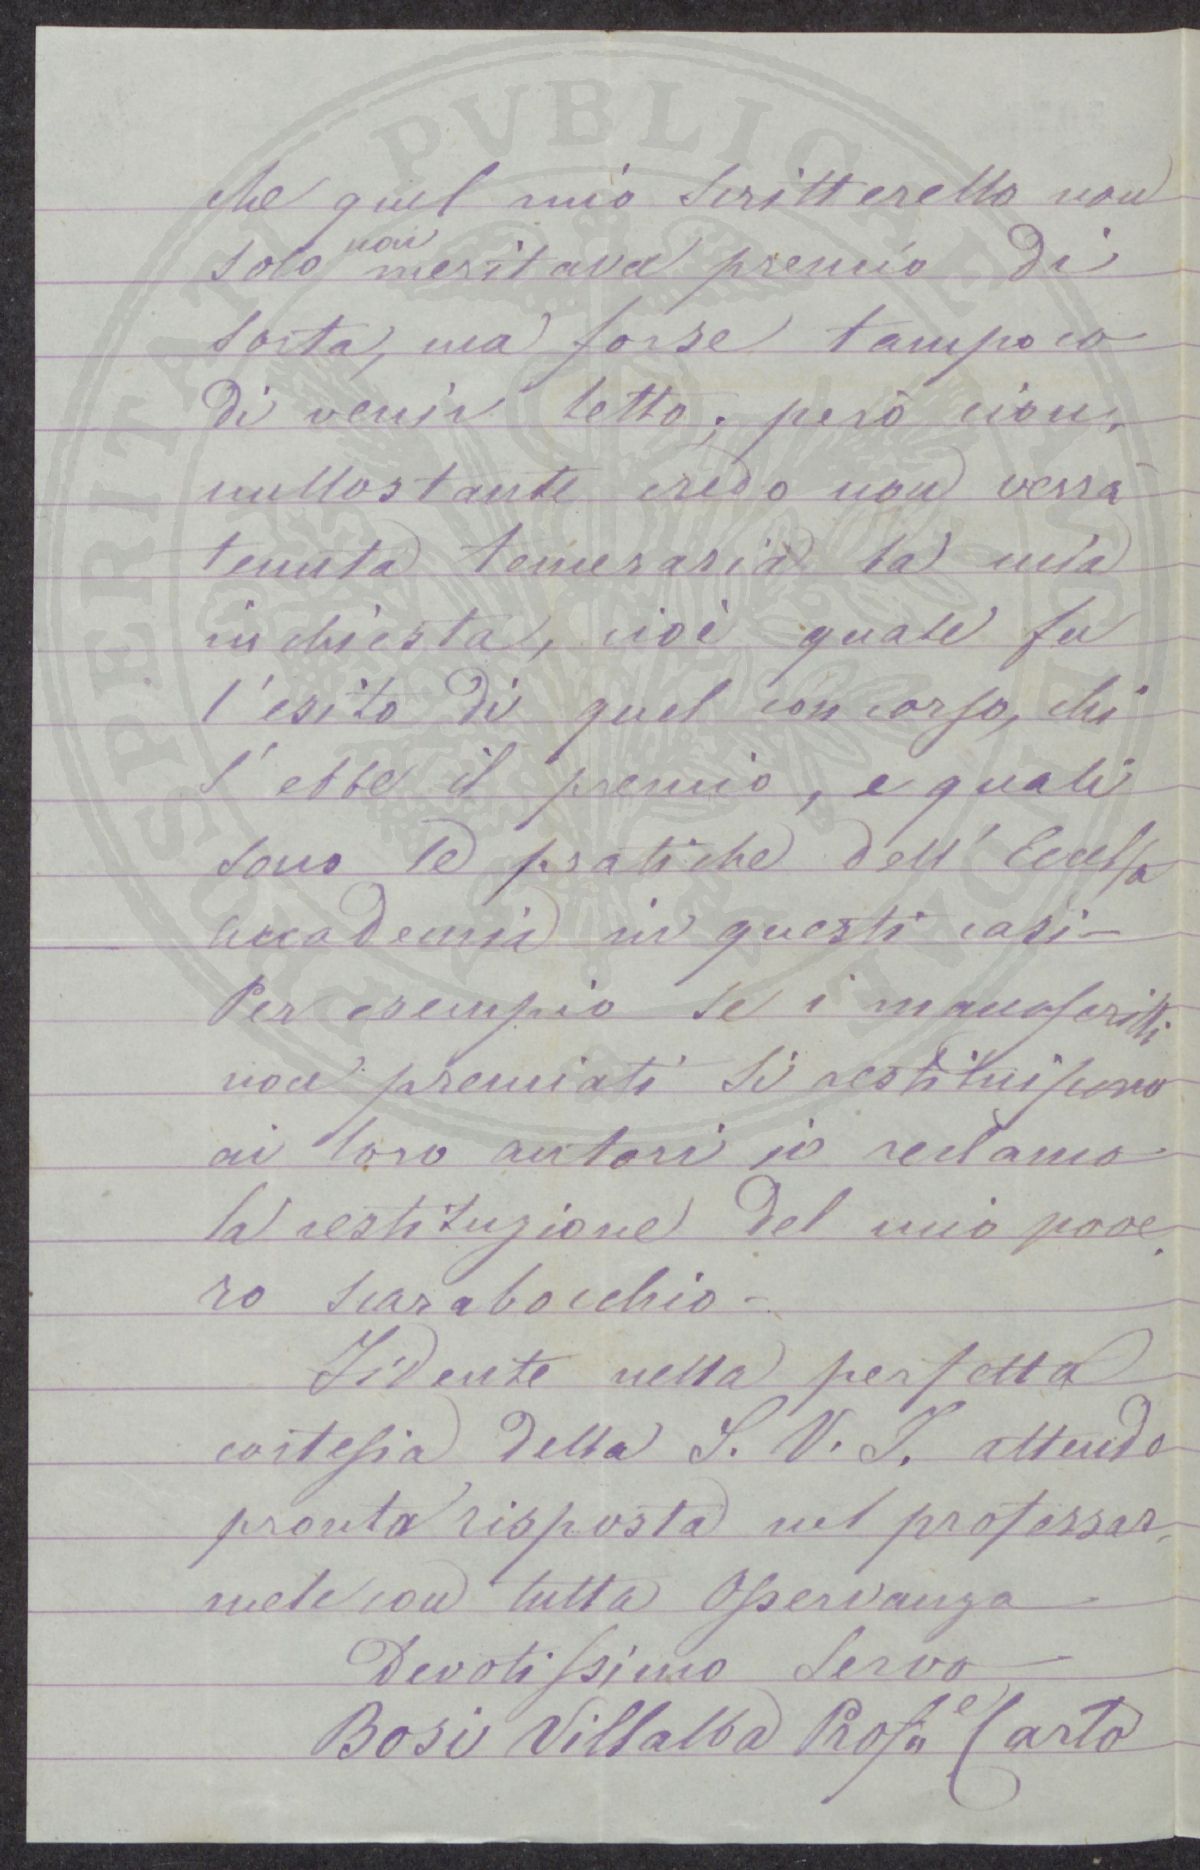 che quel mio scritterello non
solo non meritava premio di
sorta, ma forse tampoco
di venir letto; però cion,
nullostante credo non verrà
tenuta temeraria la mia
inchiesta, cioè quale fu
l'esito di quel concorso, chi
s'ebbe il premio, e quali
sono le pratiche dell'Eccelsa
accademia in questi casi—
Per esempio se i manoscritti
non premiati si restituiscono
ai loro autori io reclamo
la restituzione del mio pove,
ro scarabocchio—
Fidente nella perfetta
cortesia della S. V. I. attendo
pronta risposta nel professar,
mele con tutta osservanza
Devotissimo servo
Bosi Villalba Carlo
PROSPERITATI PVBLICAE AVGENDAE